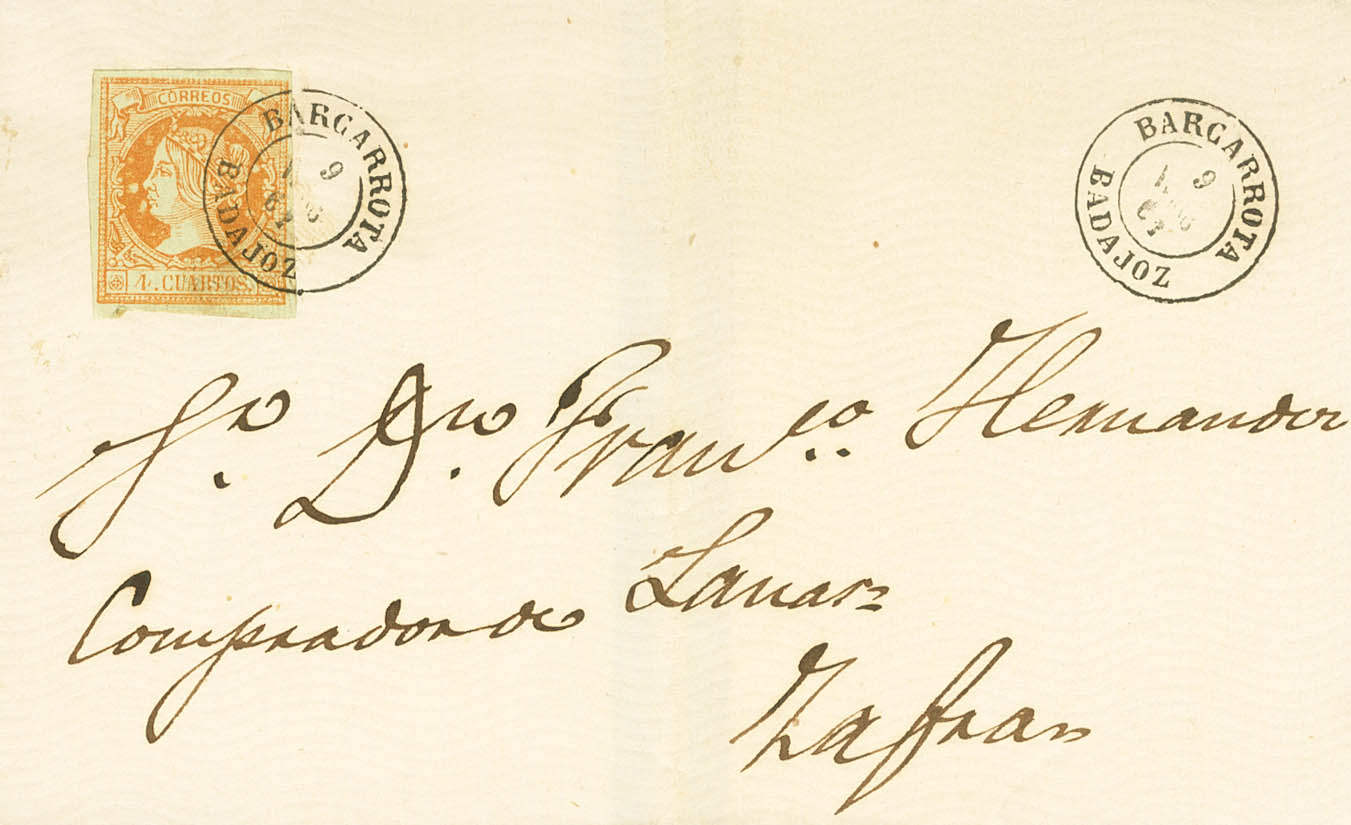 CORREOS
4. CUARTOS.
BARCARROTA
9
61
BADAJOZ
BARCARROTA
9
61
BADAJOZ
Sr. Dn. Franco. Hernandez
Comprador de Lanas
Zafra